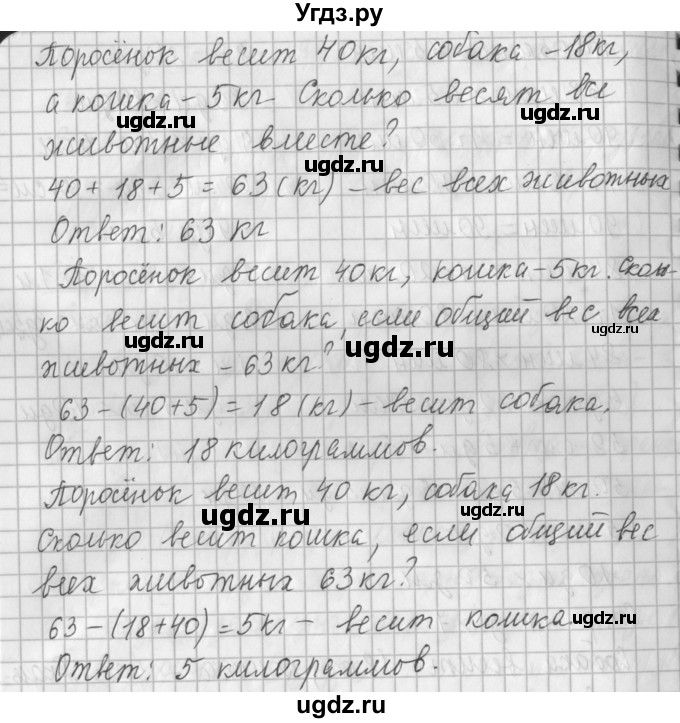 Угдз.ру
Поросёнок весит 40кг, собака -18кг,
а кошка - 5 кг Сколько весят все
ugdz.ru ugdz.ru
животные вместе?
ugdz.ru
40 + 18 + 5 = 63 (кг) - вес всех животных
Ответ: 63 кг
Поросёнок весит 40кг, кошка - 5кг. Сколь-
ко весит собака, если общий вес всех
ugdz.ru ugdz.ru ugdz.ru
животных - 63 кг?
63 - (40 + 5) = 18 (кг) - весит собака.
Ответ: 18 килограммов.
Поросёнок весит 40 кг, собака 18 кг.
ugdz.ru ugdz.ru
Сколько весит кошка, если общий вес
всех животных 63 кг?
63 - (18 + 40) = 5 кг - весит кошка
ugdz.ru
Ответ: 5 килограммов.
ugdz.ru ugdz.ru